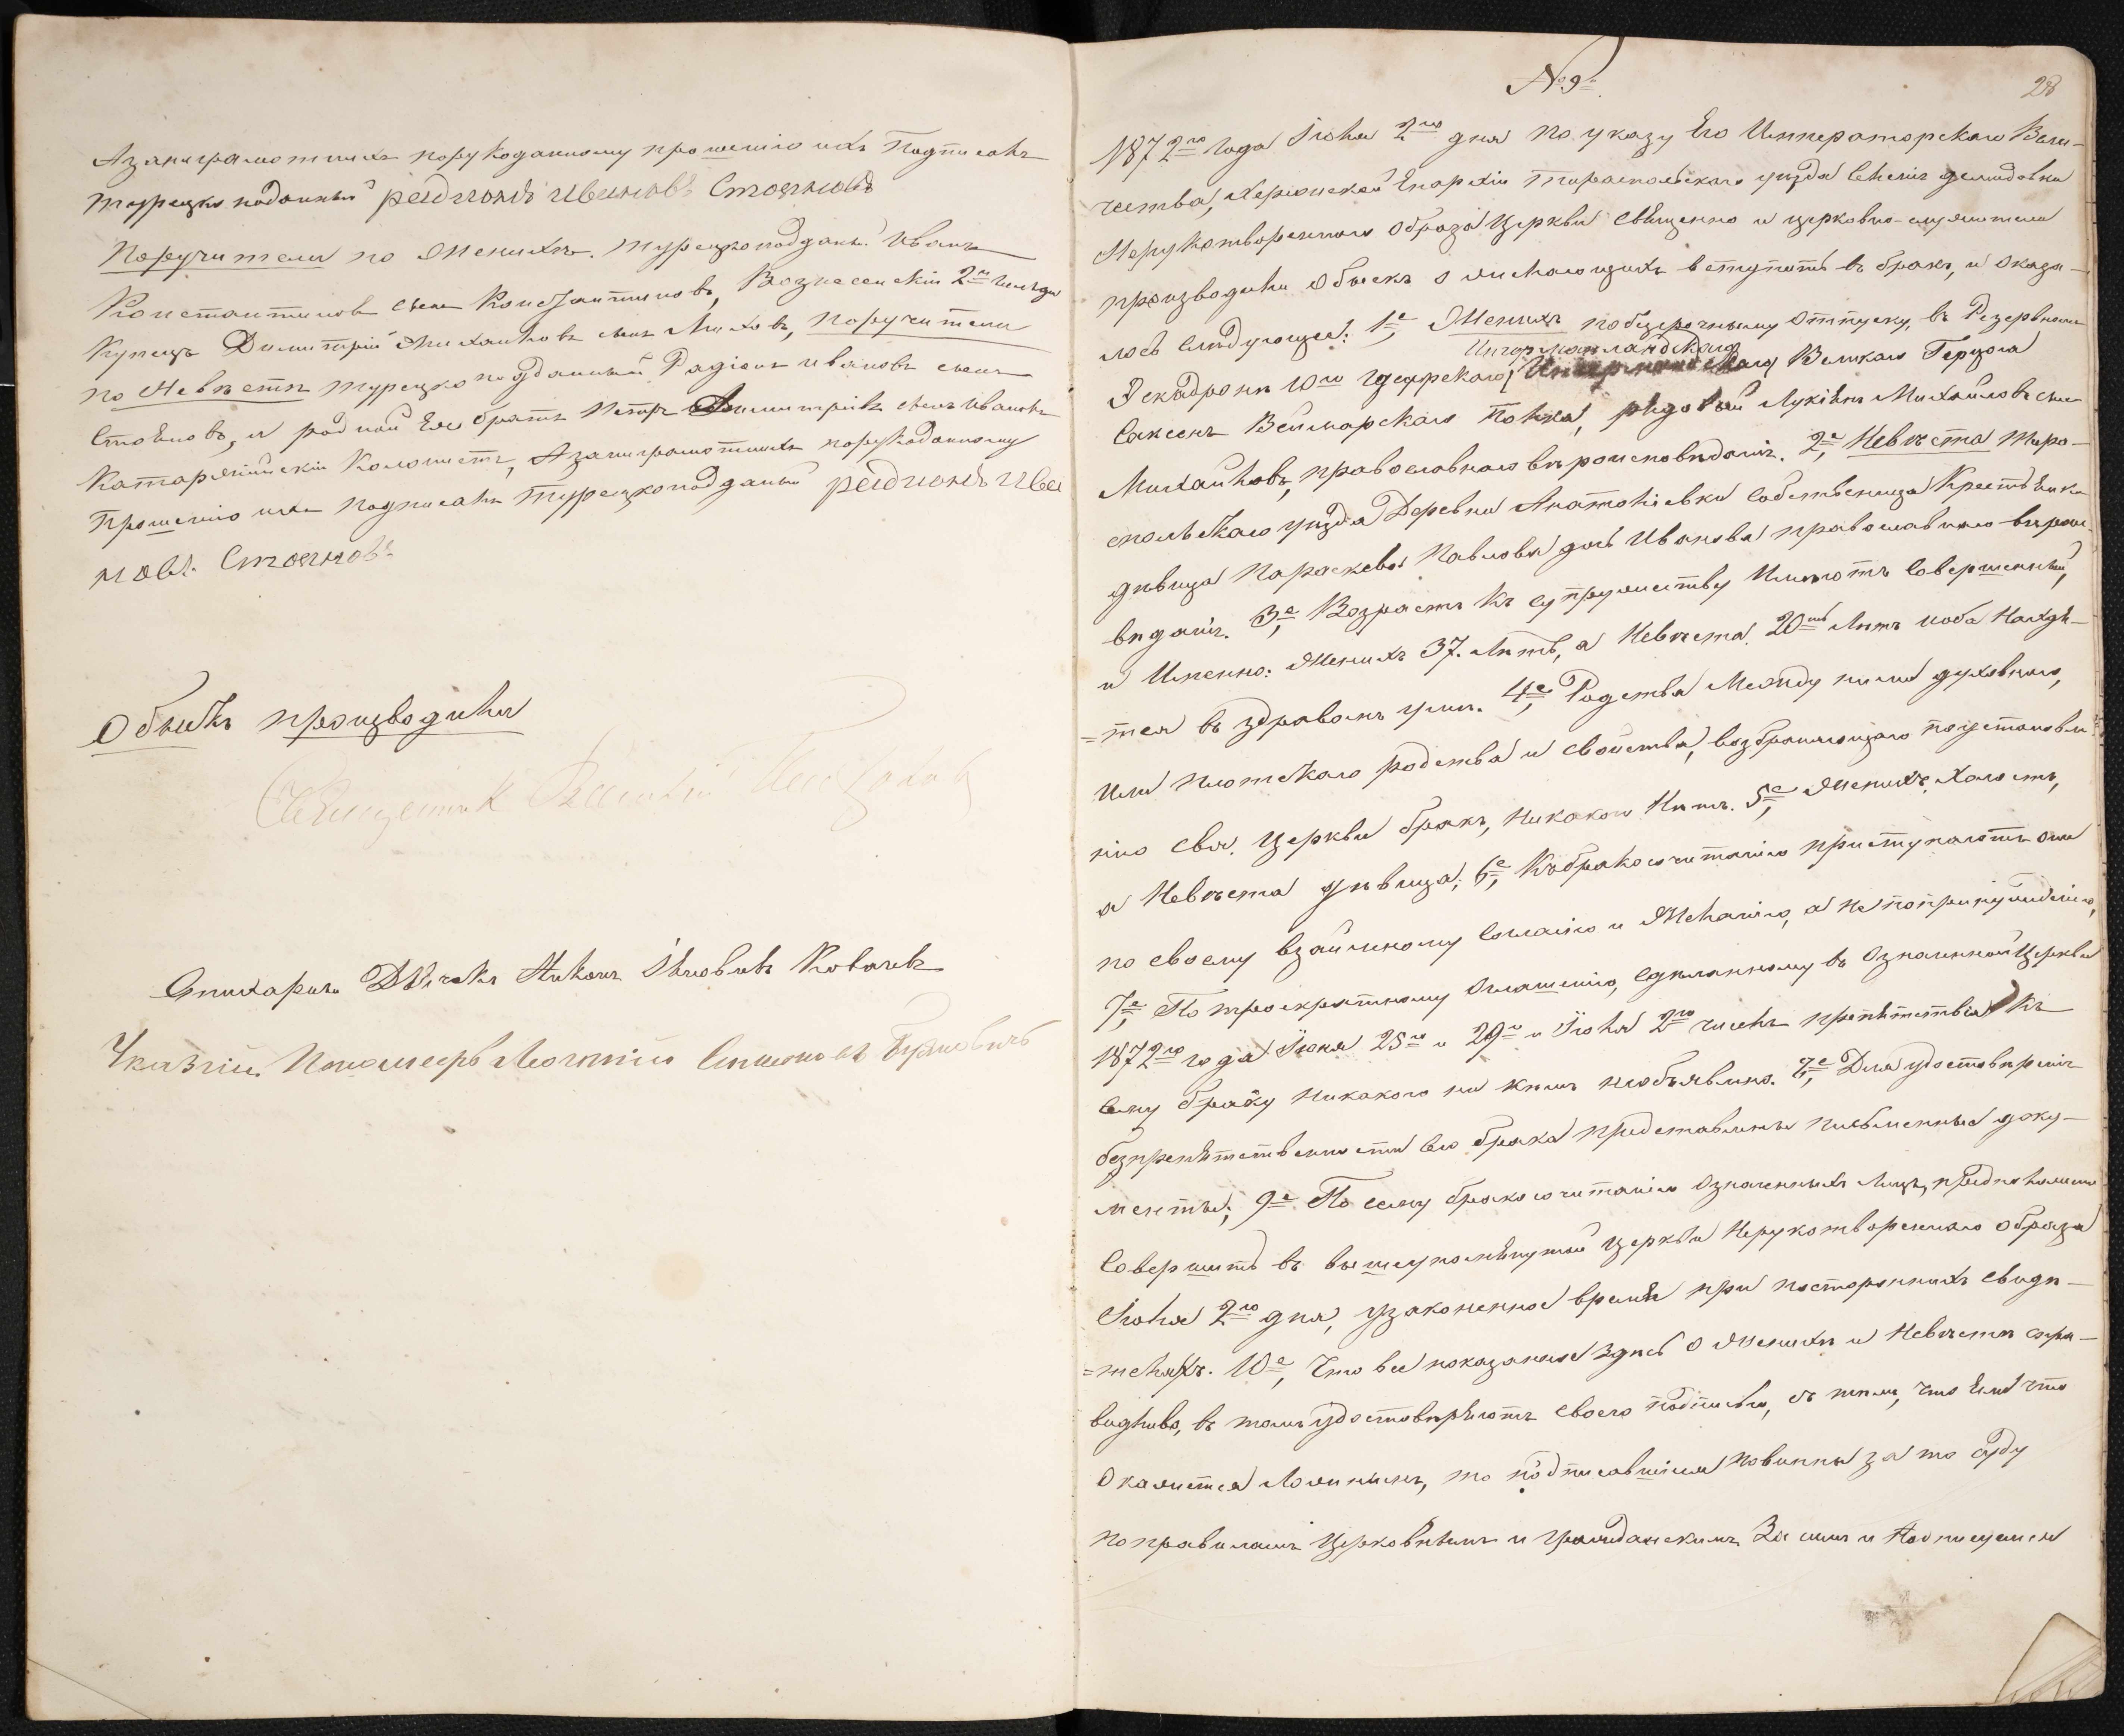 А за неграмотныхъ по рукоданному прошенію ихъ Подписалъ
турецко поданный радионъ ивановъ Стояновъ
Поручители по Женихѣ. турецкоподдань. Иванъ
Константиновъ сынъ Константиновъ, Вознесенскій 2й гильдіи
Купецъ Димитрій Михайловъ сынъ Миховъ, поручители
по Невѣстѣ турецкоподданный Радіонъ ивановъ сынъ
Стояновъ, и родной Ея братъ Петръ Димитріевъ сынъ Ивановъ
Катаржійскій Колонистъ, А за неграмотныхъ порукоданному
Прошенію ихъ подписалъ Турецкоподданый радионъ Ива
новъ. Стояновъ.
Обыскъ производили
Священникъ
Спихарный Дьячекъ Антонъ Яковлевъ Ковалевъ
Указный Пономарь
№ 9й
28
1872го года Іюля 2го дня по указу Его Императорскаго Вели-
чества, Херсонской Епархіи Тирасполькаго уѣзда Селенія демидовки
Нерукотвореннаго Образа Церкви священно и церковно-служители
производили Обыскъ о желающихъ вступить въ бракъ, и оказа-
лось слѣдующее: 1е, Женихъ по безсрочному Отпуску, въ Резервномъ
Ингерманландскаго
Эскадронѣ 10го Гусарскаго Великаго Герцога
Саксенъ Веймарскаго Полка, рядовой Лукіянъ Михайловъ сынъ
Михайловъ, православнаго вѣроисповѣданія. 2е, Невѣста Тиро-
спольскаго уѣзда Деревни Анатоліевки Собственница Крестьянка
дѣвица Параскева Павлова дочь Иванова православнаго вѣроис-
вѣданія. 3е, Возрастъ къ супружеству Имѣютъ Совершенный,
и Именно: Женихъ 37. Лѣтъ, а Невѣста 20ть Лѣтъ иоба Находя-
=тся въ здравомъ умѣ. 4е, Родства Между ними духовнаго,
или плотскаго родства и свойства, возбраняющаго поустановле-
нію Свя. Церкви бракъ, Никакого Нѣтъ. 5е, Женихъ Холостъ,
а Невѣста дѣвица; 6е, Къ бракосочитанію приступаютъ они
по своему взаимному Согласію и Желанію, а не по принужденію,
7е, По троекратному Оглашенію, сдѣланному въ Означенной Церкви
1872го года Іюня 25го и 29го и Іюля 2го числъ препятствія къ
сему браку никакого ни кѣмъ необъявлено. 8е, Для удостовѣренія
безпрепятственности сего брака представлены письменные доку-
менты; 9е По сему бракосочитаніе Означенныхъ Лицъ, предположено
Совершить въ вышеупомянутой Церкви Нерукотвореннаго Образа
Іюля 2го дня, узаконенное время при постороннихъ свидѣ-
=теляхъ. 10е, Что все показанное Здѣсь о Женихѣ и Невѣстѣ спра-
видливо, въ томъ удостовѣряютъ своею подписью, съ тѣмъ, что Если что
Окажется Ложнымъ, то подписавшіися повинны за то суду
по правиламъ Церковнымъ и гражданскимъ За симъ и подписуемся